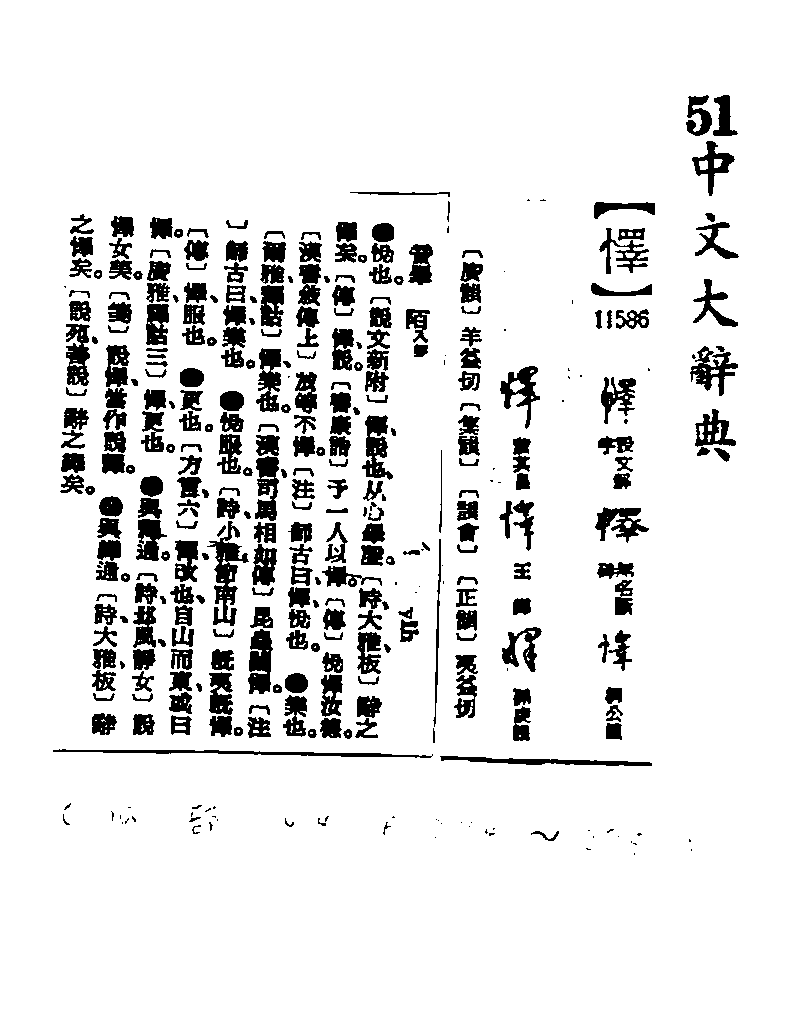 51
中文大辭典
【懌】
11586
說文解字
無名隸碑
王鐸
〔廣韻〕羊益切〔集韻〕〔韻會〕〔正韻〕夷益切
音繹 陌入聲
yih
悅也。〔說文新附〕懌、說也、从心睪聲。〔詩、大雅、板〕辭之
懌矣。〔傳〕懌、說。〔書、康誥〕予一人以懌。〔傳〕悅懌汝德。
〔漢書敘傳上〕放等不懌。〔注〕師古曰、懌、悅也。樂也。
〔爾雅、釋詁〕懌、樂也。〔漢書、司馬相如傳〕昆蟲闓懌。〔注
〕師古曰、懌、樂也。悅服也。〔詩、小雅、節南山〕既夷既懌。
〔傳〕懌、服也。更也。〔方言、六〕懌、改也、自山而東、或曰
懌。〔廣雅、釋詁三〕懌、更也。與釋通。〔詩、邶風、靜女〕說
懌女美。〔箋〕說懌當作說釋。與繹通。〔詩、大雅、板〕辭
之懌矣。〔說苑、善說〕辭之繹矣。